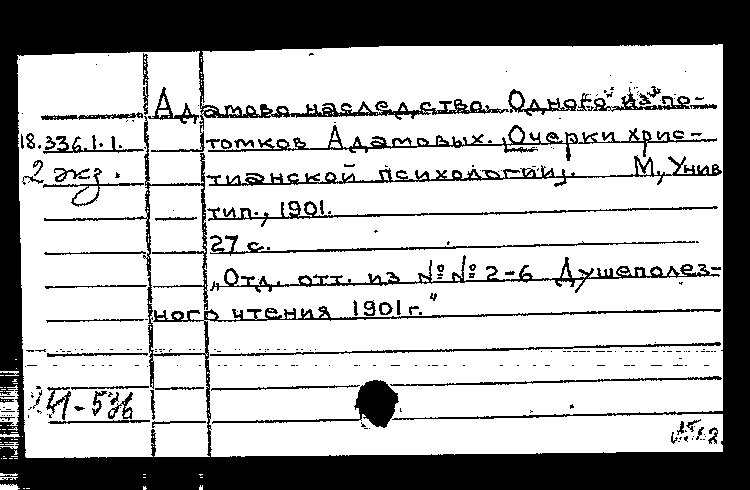 Адамово наследство. Одного из по-
18.336.1.1. томков Адамовых. [Очерки хрис-
2 экз. тианской психологии]. М, Унив
тип., 1901.
27 с.
„Отд. отт. из №№ 2-6 Душеполез-
ного чтения 1901 г."
241-536